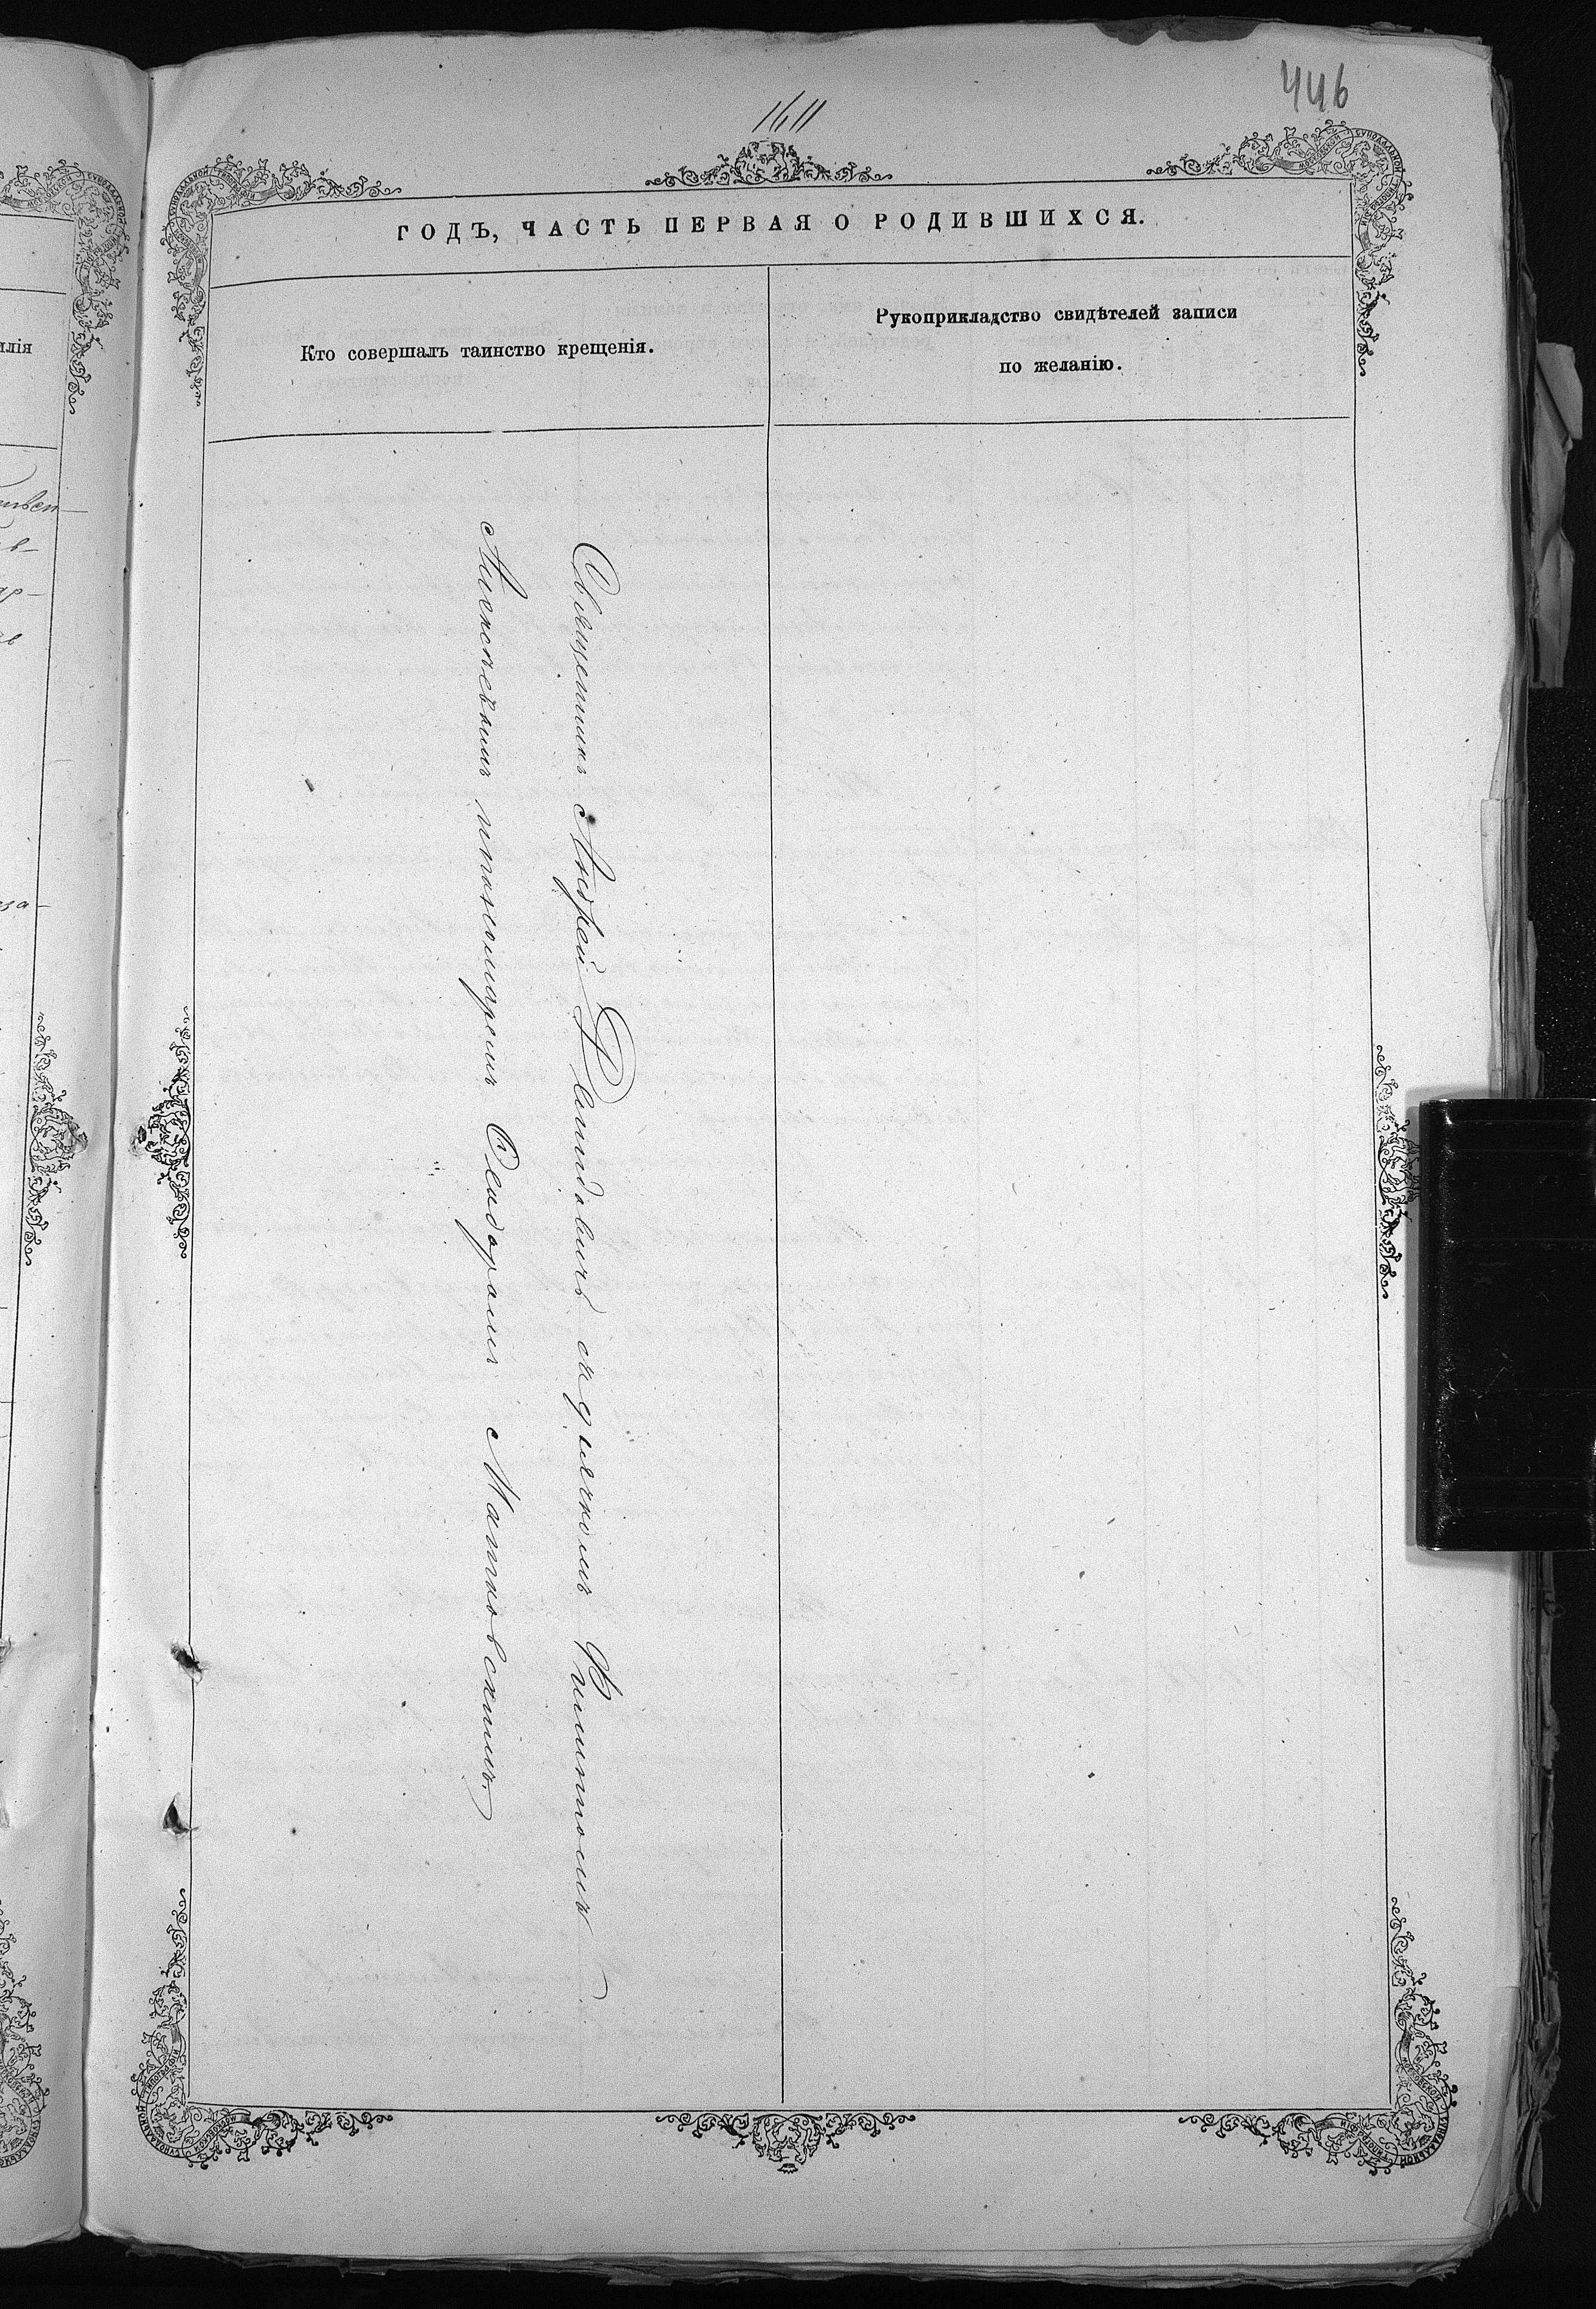 446
1611
ГОДЪ, ЧАСТЬ ПЕРВАЯ О РОДИВШИХСЯ.
Кто совершалъ таинство крещенія.
Рукоприкладство свидѣтелей записи
по желанію.
Священникъ Андрей Давидовичъ съ дьячкомъ Филиппомъ
и пономаремъ Сидоромъ Матковскимъ.
илія